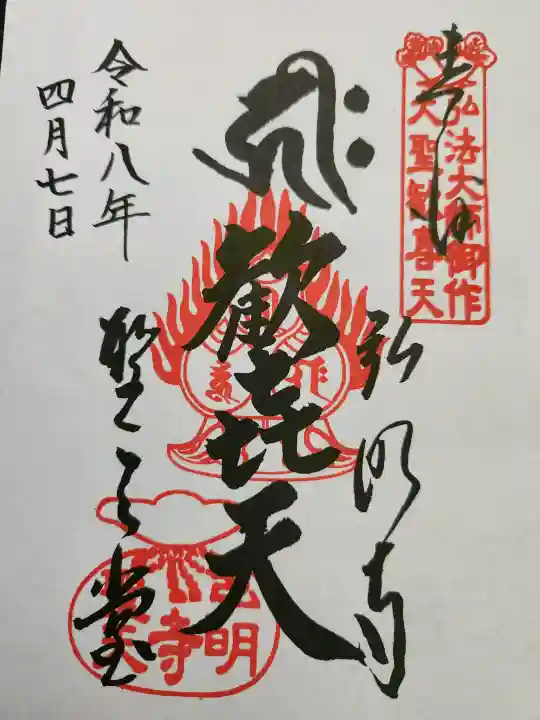 奉拝
弘法大師御作
大聖歓喜天
弘明寺
歓㐂天
聖天堂
令和八年
四月七日